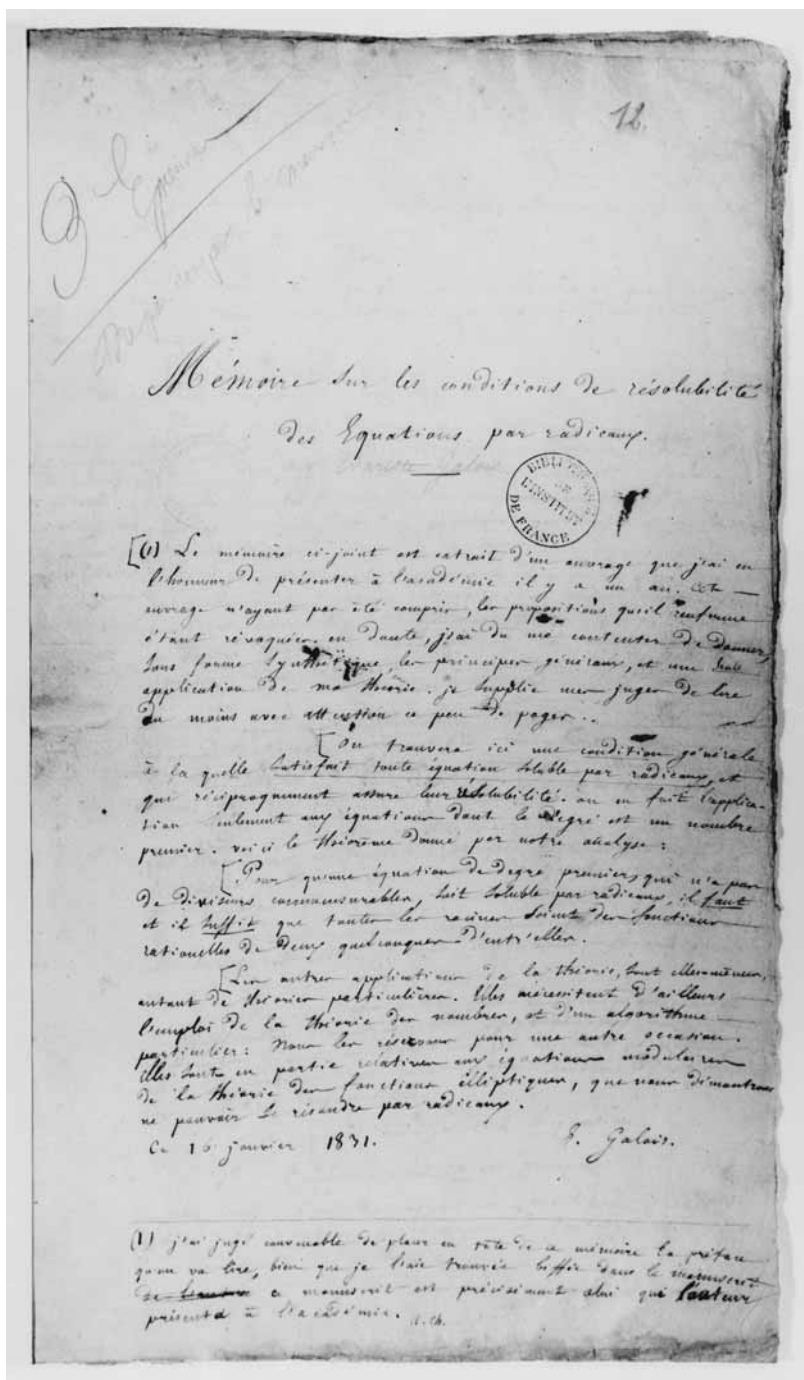 12.
3 Epreuves
Mémoire sur les conditions de résolubilité
des Equations par radicaux.
Evariste Galois
BIBLIOTHÈQUE
DE
L'INSTITUT
DE FRANCE
[(1) Le mémoire ci-joint est extrait d'un ouvrage que j'ai eu
l'honneur de présenter à l'académie il y a un an. Cet
ouvrage n'ayant pas été compris, les propositions qu'il renferme
étant révoquées en doute, j'ai du me contenter de donner,
sous forme synthétique, les principes généraux, et une seule
application de ma théorie. je supplie mes juges de lire
du moins avec attention ce peu de pages..
[On trouvera ici une condition générale
à la quelle satisfait toute équation soluble par radicaux, et
qui réciproquement assure leur résolubilité. on en fait l'applica-
tion seulement aux équations dont le degré est un nombre
premier. voici le théorème donné par notre analyse :
[Pour qu'une équation de degré premier, qui n'a pas
de diviseurs commensurables, soit soluble par radicaux, il faut
et il suffit que toutes les racines soient des fonctions
rationelles de deux quelconques d'entr'elles.
[Les autres applications de la théorie, sont elles-mêmes,
autant de théories particulières. Elles nécessitent d'ailleurs
l'emploi de la théorie des nombres, et d'un algorithme
particulier: Nous les réservons pour une autre occasion.
Elles sont en partie relatives aux équations modulaires
de la théorie des fonctions elliptiques, que nous démontrons
ne pouvoir se résoudre par radicaux.
Ce 16 janvier 1831. E. Galois.
(1) j'ai jugé convenable de placer en tête de ce mémoire la préface
qu'on va lire, bien que je l'aie trouvée biffée dans le manuscrit
ce manuscrit est précisément celui que l'auteur
présenta à l'académie. A. Ch.